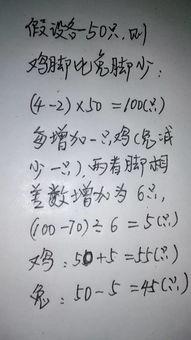 假设各一50只,则
鸡脚比兔脚少:
(4-2)×50=100(只)
每增加一只鸡(兔减
少一只),两者脚相
差数增加为6只,
(100-70)÷6=5(只)
鸡:50+5=55(只)
兔:50-5=45(只)